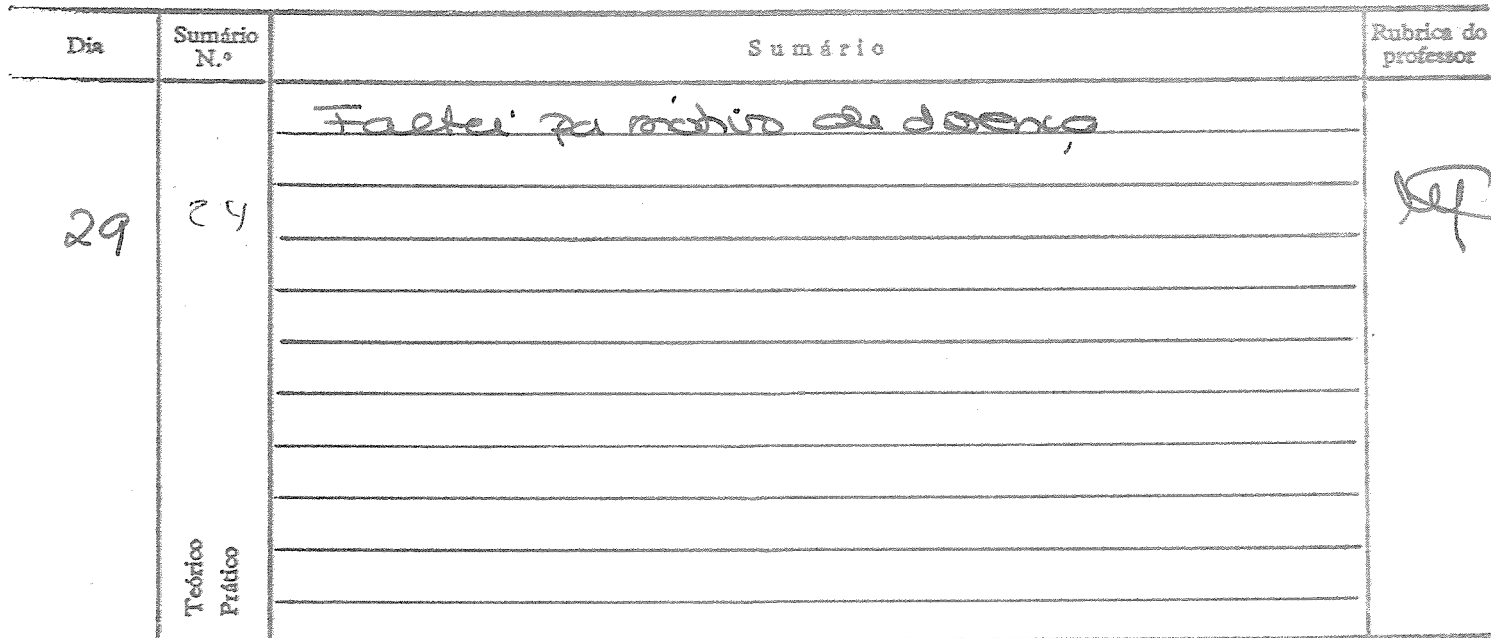 Dia
Sumário N.º
Sumário
Rubrica do professor
Faltei por motivo de doença
29
24
Teórico
Prático